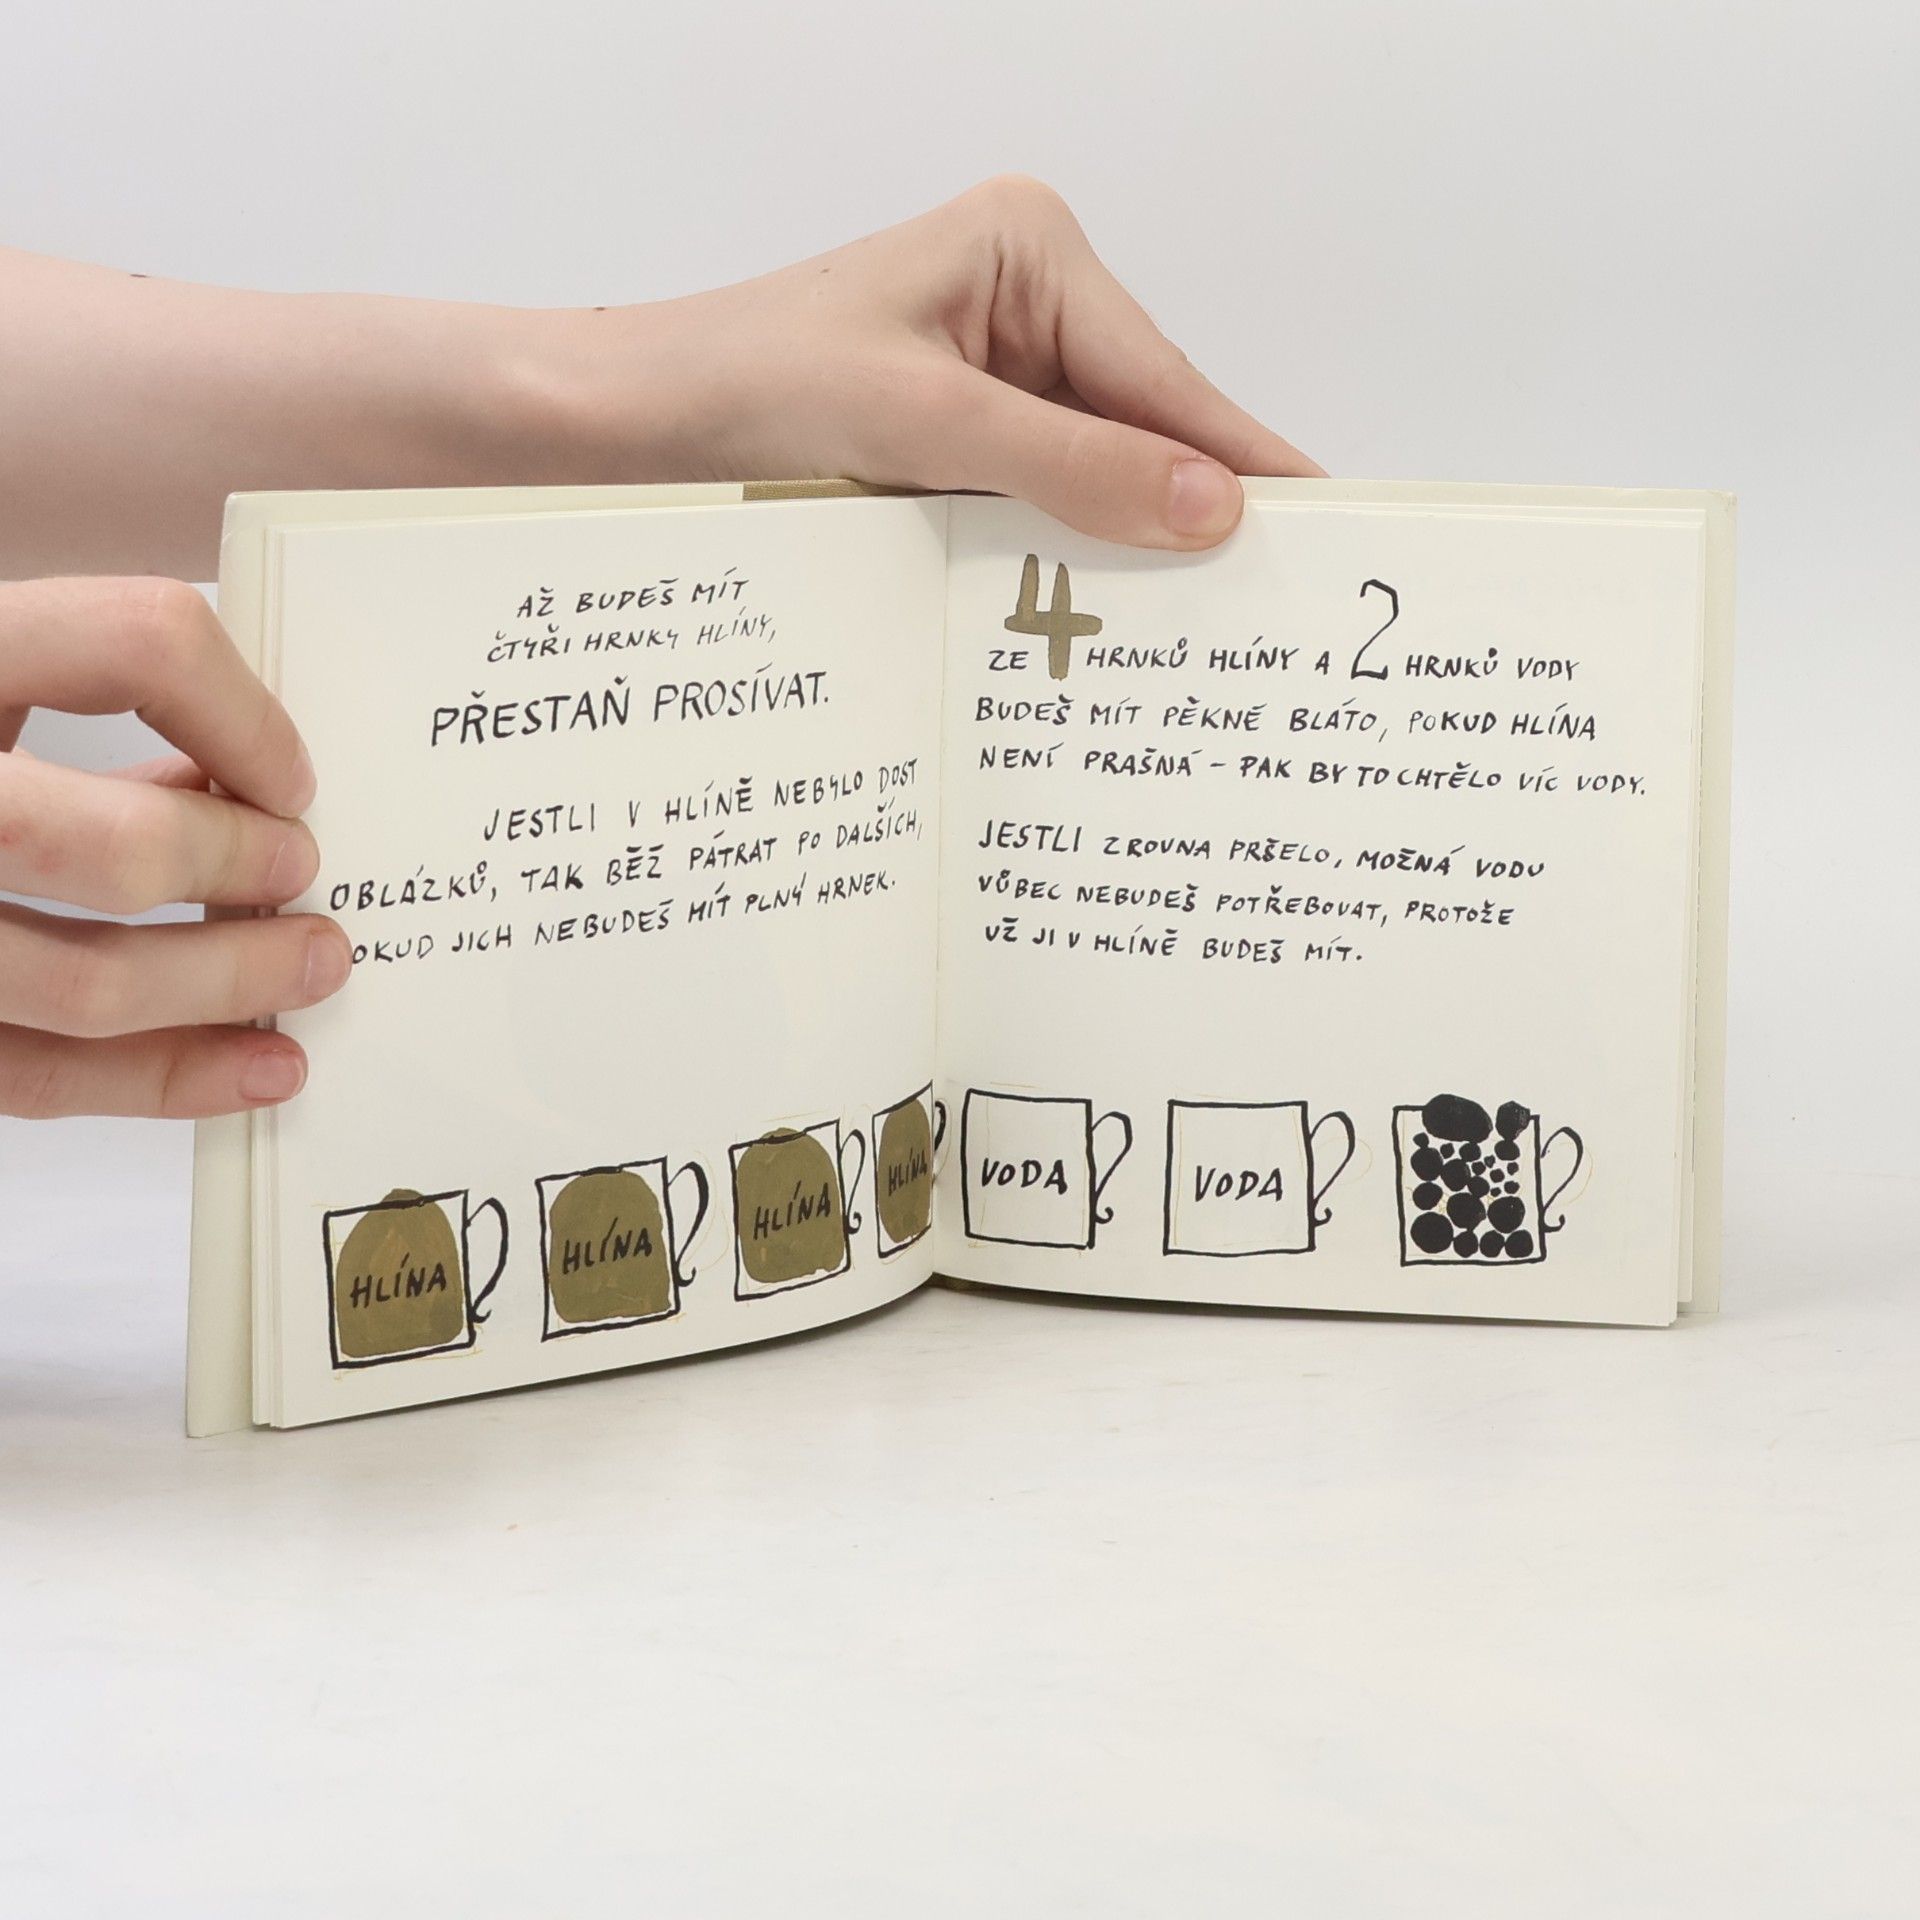 AŽ BUDEŠ MÍT
ČTYŘI HRNKY HLÍNY,
PŘESTAŇ PROSÍVAT.
JESTLI V HLÍNĚ NEBYLO DOST
OBLÁZKŮ, TAK BĚŽ PÁTRAT PO DALŠÍCH,
POKUD JICH NEBUDEŠ MÍT PLNÝ HRNEK.
HLÍNA
HLÍNA
HLÍNA
HLÍNA
ZE 4 HRNKŮ HLÍNY A 2 HRNKŮ VODY
BUDEŠ MÍT PĚKNÉ BLÁTO, POKUD HLÍNA
NENÍ PRAŠNÁ – PAK BY TO CHTĚLO VÍC VODY.
JESTLI ZROVNA PRŠELO, MOŽNÁ VODU
VŮBEC NEBUDEŠ POTŘEBOVAT, PROTOŽE
UŽ JI V HLÍNĚ BUDEŠ MÍT.
VODA
VODA